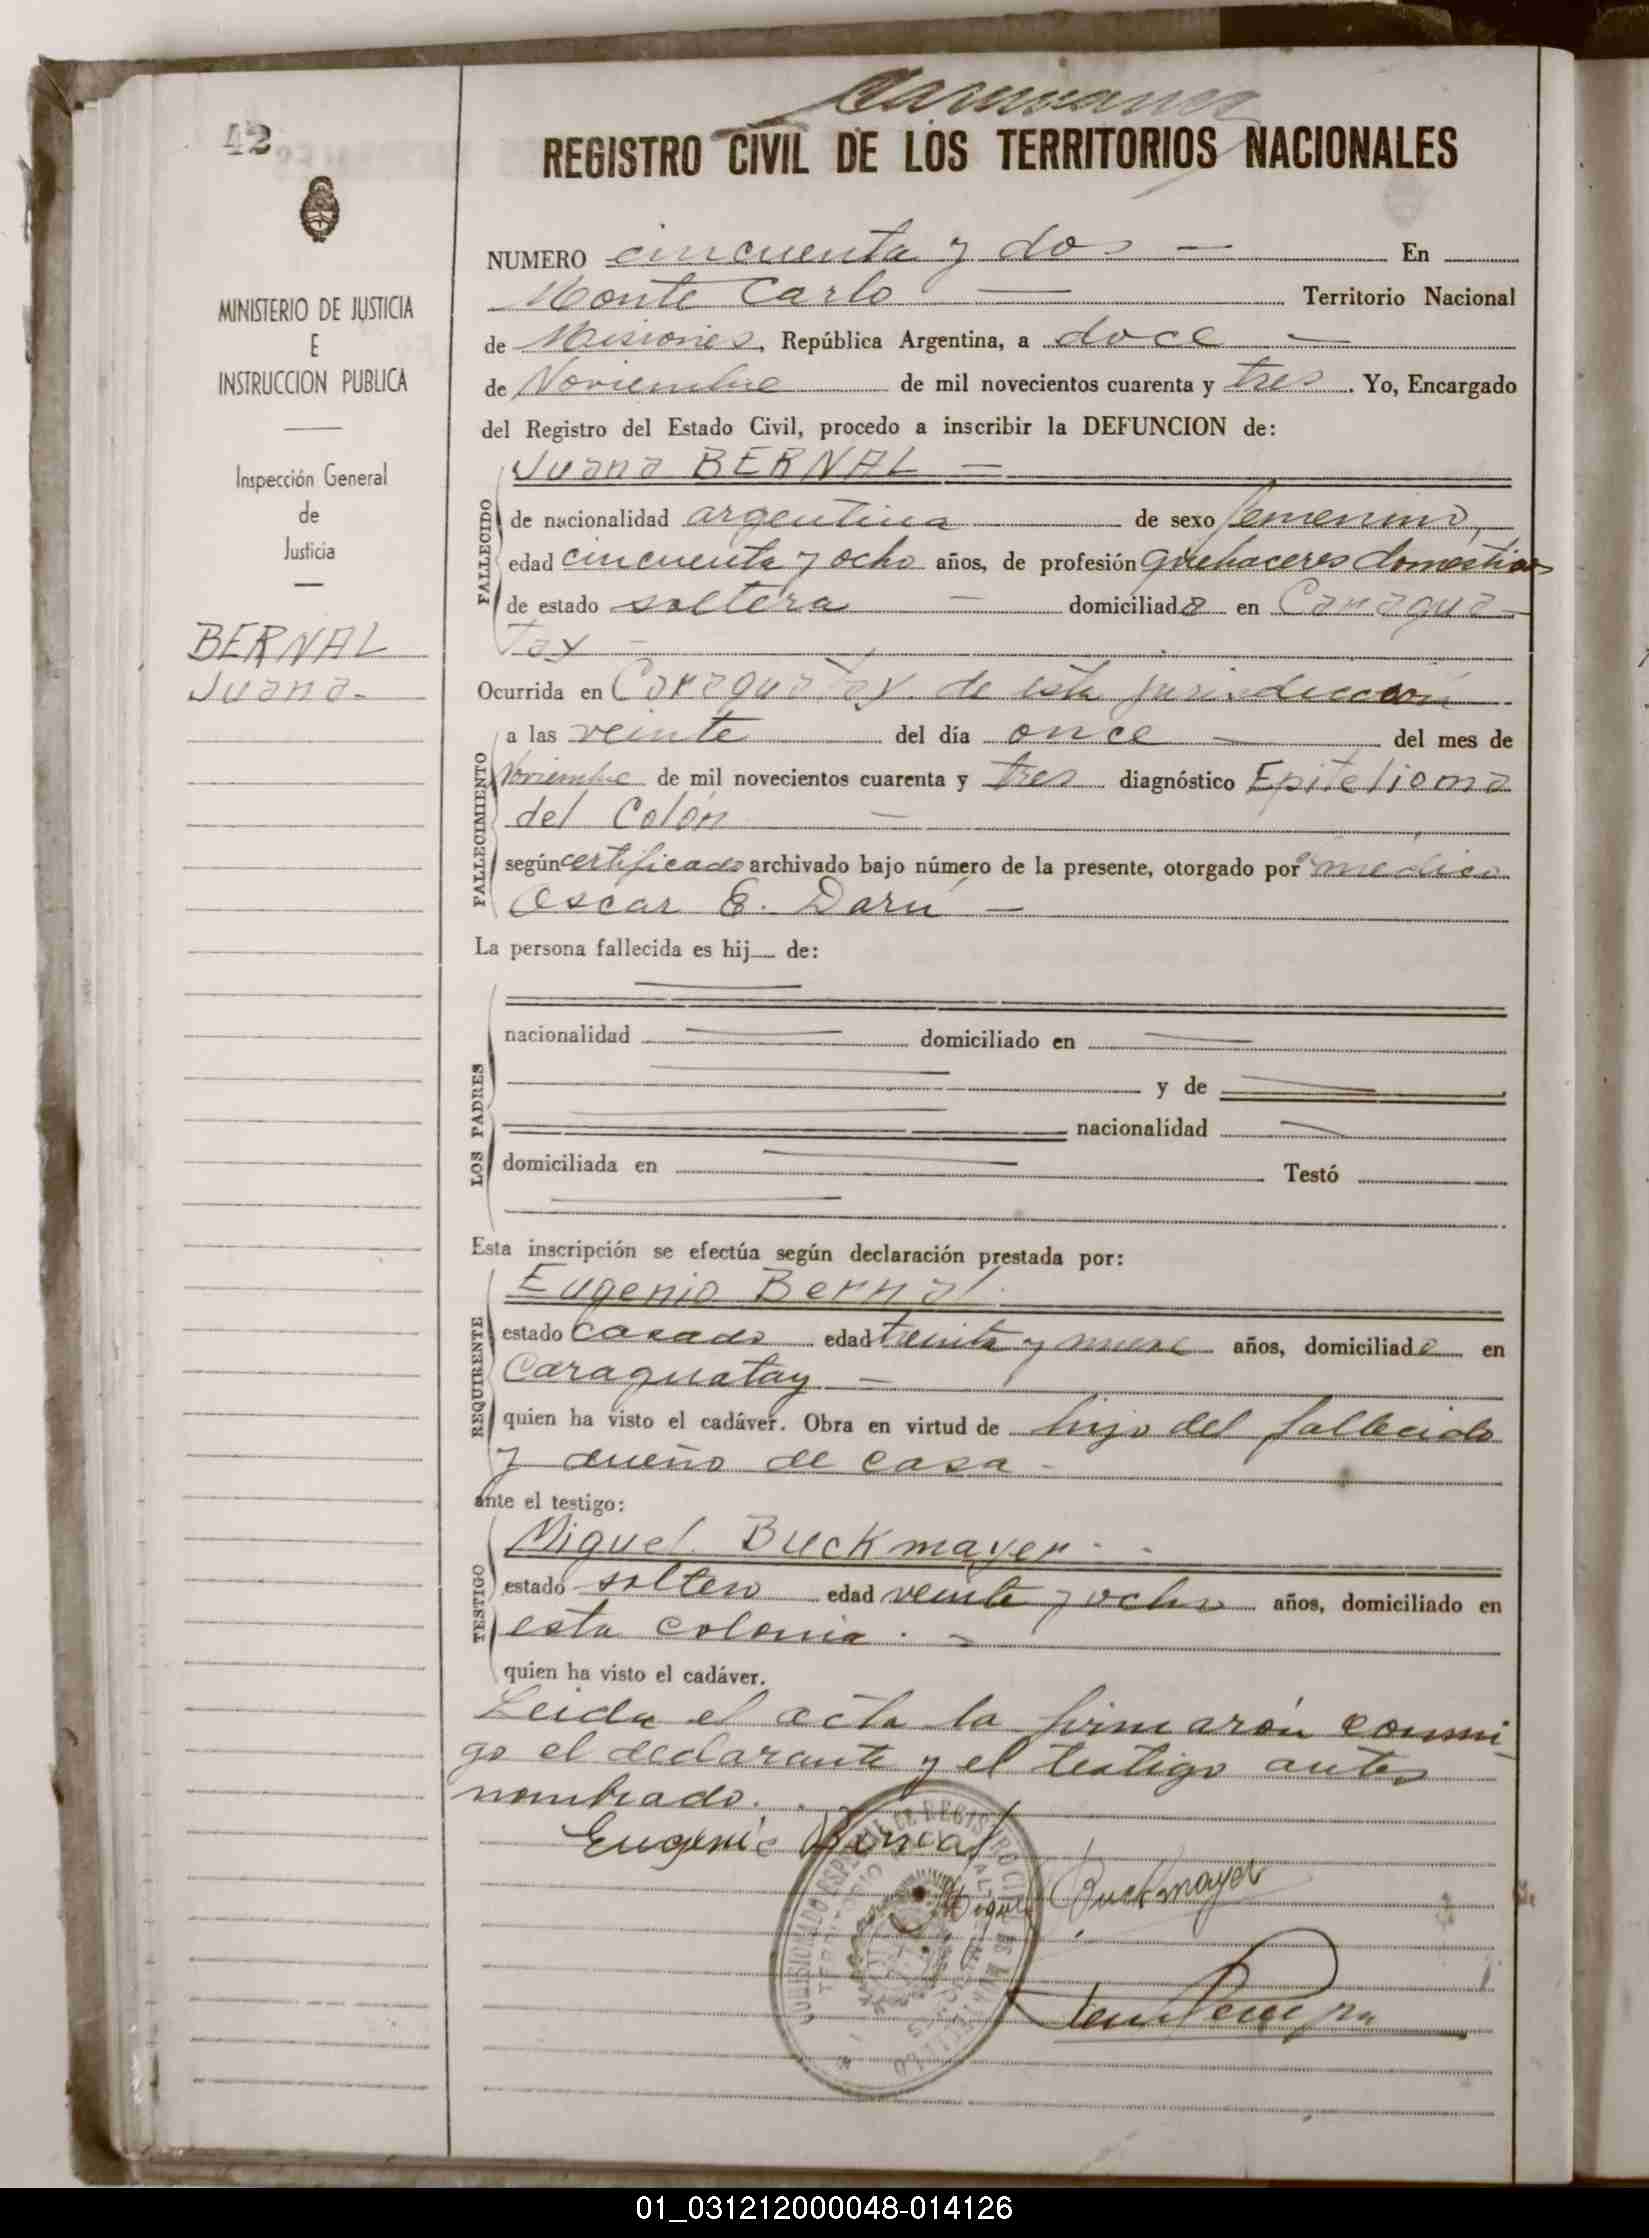 42
REGISTRO CIVIL DE LOS TERRITORIOS NACIONALES
MINISTERIO DE JUSTICIA
E
INSTRUCCION PUBLICA
Inspección General
de
Justicia
BERNAL
Juana-
NUMERO cincuenta y dos — En
Monte Carlo — Territorio Nacional
de Misiones, República Argentina, a doce —
de Noviembre de mil novecientos cuarenta y tres. Yo, Encargado
del Registro del Estado Civil, procedo a inscribir la DEFUNCION de:
Juana BERNAL —
FALLECIDO
de nacionalidad argentina de sexo femenino,
edad cincuenta y ocho años, de profesión quehaceres domésticos
de estado soltera — domiciliada en Caragua-
tay —
Ocurrida en Caraguatay de esta jurisdicción
FALLECIMIENTO
a las veinte del día once — del mes de
Noviembre de mil novecientos cuarenta y tres diagnóstico Epitelioma
del Colón —
según certificado archivado bajo número de la presente, otorgado por médico
Oscar E. Darú —
La persona fallecida es hij de:
LOS PADRES
nacionalidad domiciliado en
y de
nacionalidad
domiciliada en Testó
Esta inscripción se efectúa según declaración prestada por:
REQUIRENTE
Eugenio Bernal
estado casado edad treinta y nueve años, domiciliado en
Caraguatay —
quien ha visto el cadáver. Obra en virtud de hijo del fallecido
y dueño de casa -
ante el testigo:
TESTIGO
Miguel Buckmayer - -
estado soltero edad veinte y ocho años, domiciliado en
esta colonia . -
quien ha visto el cadáver.
Leida el acta la firmarón conmi
go el declarante y el testigo antes
nombrado. .
Eugenio Bernal
Miguel Buckmayer
01_031212000048-014126